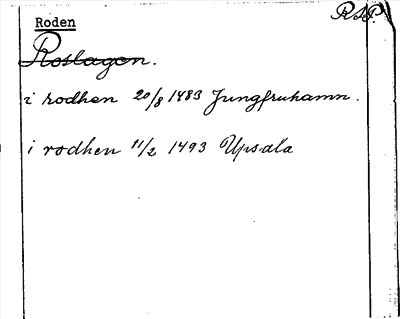 Roden
R S P.
Roslagen.
i rodhen 20/8 1483 Jungfruhamn.
i rodhen 11/2 1493 Upsala